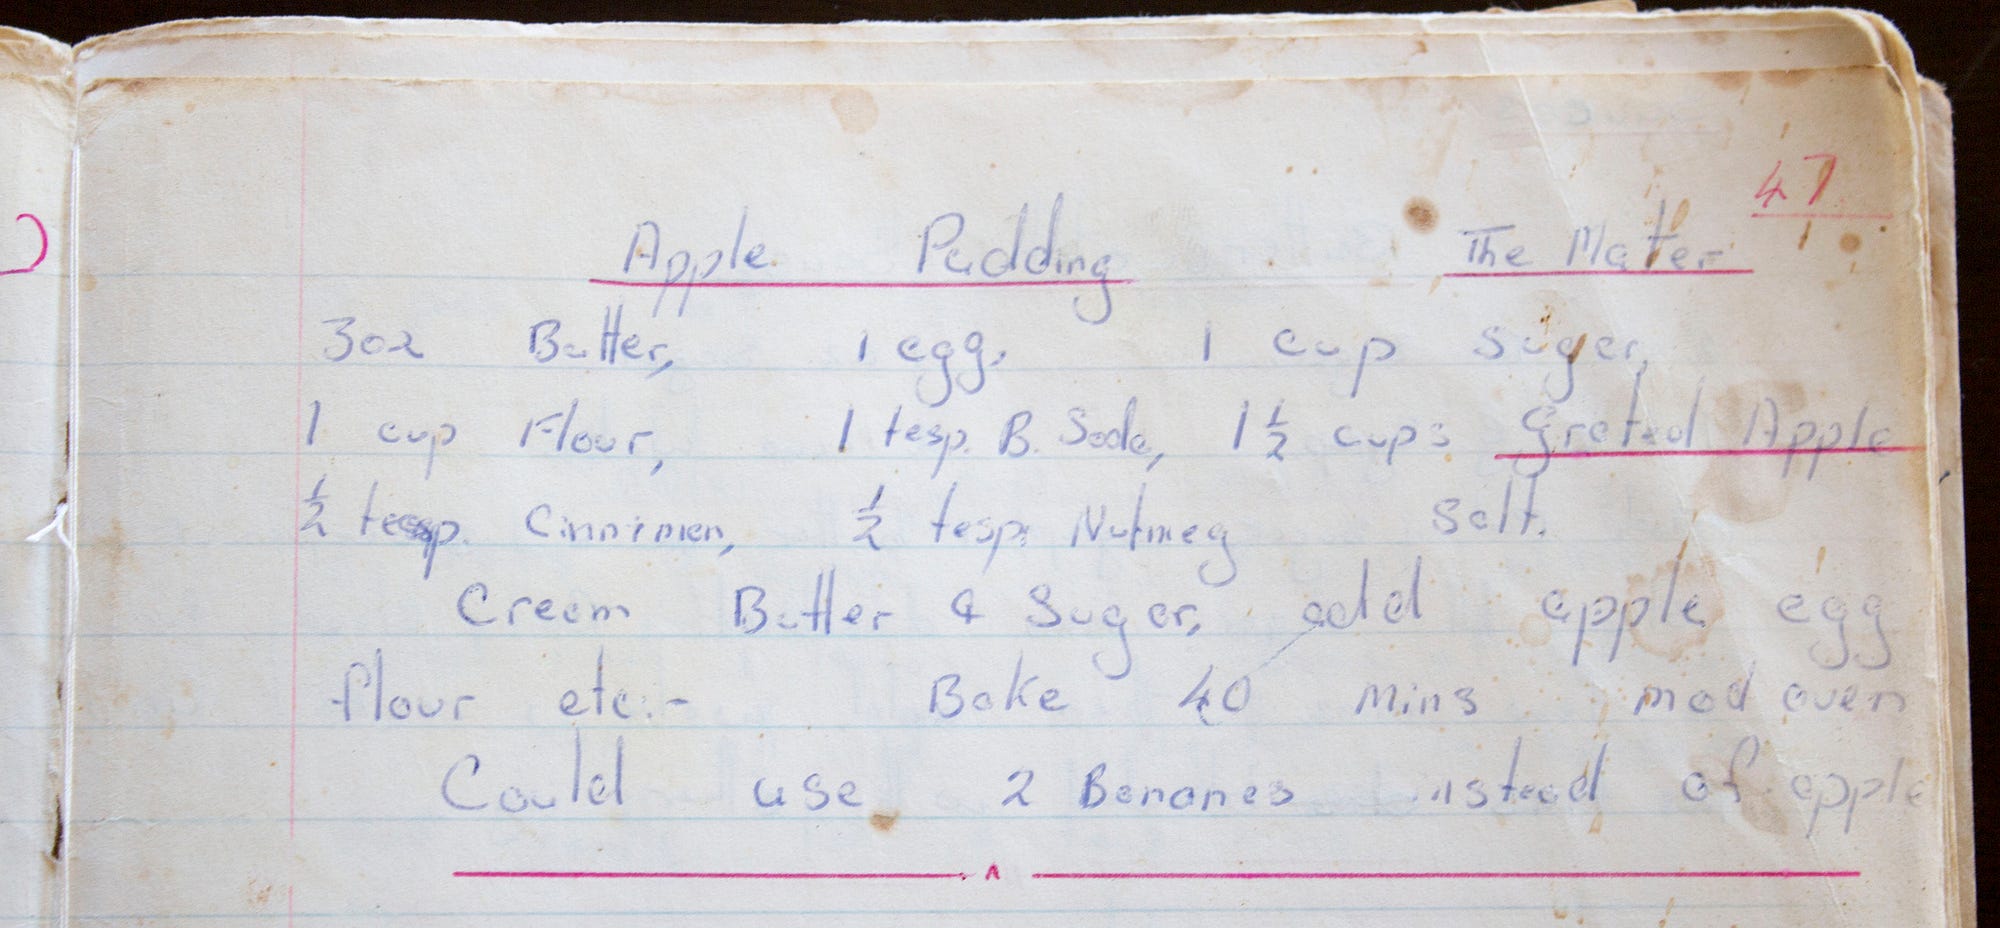 47
Apple Pudding The Mater
3oz Butter, 1 egg, 1 cup suger,
1 cup Flour, 1 tesp. B. Soda, 1 ½ cups Grated Apple,
½ tesp. Cinnimen, ½ tesp. Nutmeg Salt.
Cream Butter & Suger, add apple egg
flour etc:- Bake 40 mins mod oven
Could use 2 Bananas instead of apple